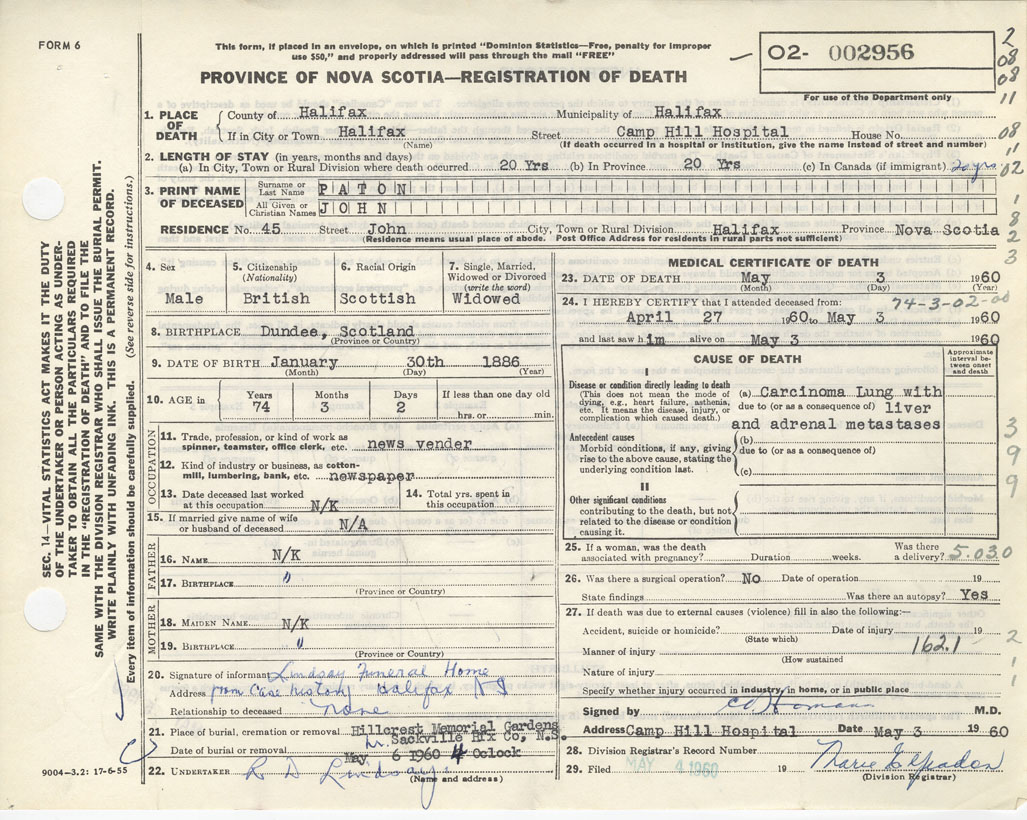 FORM 6
This form, if placed in an envelope, on which is printed "Dominion Statistics—Free, penalty for improper
use $50," and properly addressed will pass through the mail "FREE"
PROVINCE OF NOVA SCOTIA—REGISTRATION OF DEATH
02- 002956
For use of the Department only
2
08
08
11
08
11
02
1
8
2
3
3
9
9
2
1
1
SEC. 14—VITAL STATISTICS ACT MAKES IT THE DUTY
OF THE UNDERTAKER OR PERSON ACTING AS UNDER-
TAKER TO OBTAIN ALL THE PARTICULARS REQUIRED
IN THE "REGISTRATION OF DEATH" AND TO FILE THE
SAME WITH THE DIVISION REGISTRAR WHO SHALL ISSUE THE BURIAL PERMIT.
WRITE PLAINLY WITH UNFADING INK. THIS IS A PERMANENT RECORD.
Every item of information should be carefully supplied. (See reverse side for instructions.)
1. PLACE OF DEATH
County of Halifax Municipality of Halifax
If in City or Town Halifax Street Camp Hill Hospital House No.
(Name) (If death occurred in a hospital or institution, give the name instead of street and number)
2. LENGTH OF STAY (in years, months and days)
(a) In City, Town or Rural Division where death occurred 20 Yrs (b) In Province 20 Yrs (c) In Canada (if immigrant) 20 yrs
3. PRINT NAME OF DECEASED
Surname or Last Name PATON
All Given or Christian Names JOHN
RESIDENCE No. 45 Street John City, Town or Rural Division Halifax Province Nova Scotia
(Residence means usual place of abode. Post Office Address for residents in rural parts not sufficient)
4. Sex 5. Citizenship (Nationality) 6. Racial Origin 7. Single, Married, Widowed or Divorced (write the word)
Male British Scottish Widowed
8. BIRTHPLACE Dundee, Scotland
(Province or Country)
9. DATE OF BIRTH January 30th 1886
(Month) (Day) (Year)
10. AGE in Years Months Days If less than one day old
74 3 2 hrs. or min.
OCCUPATION
11. Trade, profession, or kind of work as
spinner, teamster, office clerk, etc. news vender
12. Kind of industry or business, as cotton-
mill, lumbering, bank, etc. newspaper
13. Date deceased last worked at this occupation N/K 14. Total yrs. spent in this occupation
15. If married give name of wife
or husband of deceased N/A
FATHER
16. NAME N/K
17. BIRTHPLACE "
(Province or Country)
MOTHER
18. MAIDEN NAME N/K
19. BIRTHPLACE "
(Province or Country)
20. Signature of informant Lindsay Funeral Home
Address from Case history Halifax NS
Relationship to deceased None
21. Place of burial, cremation or removal Hillcrest Memorial Gardens
Sackville Hfx Co, N.S.
Date of burial or removal May 6 1960 4 Oclock
22. UNDERTAKER R D Lindsay
(Name and address)
9004-3.2: 17-6-55
MEDICAL CERTIFICATE OF DEATH
23. DATE OF DEATH May 3 1960
(Month) (Day) (Year)
24. I HEREBY CERTIFY that I attended deceased from: 74-3-02-00
April 27 1960 to May 3 1960
and last saw him alive on May 3 1960
CAUSE OF DEATH
Approximate interval be-
tween onset and death
I
Disease or condition directly leading to death
(This does not mean the mode of
dying, e.g., heart failure, asthenia,
etc. It means the disease, injury, or
complication which caused death.)
(a) Carcinoma Lung with
due to (or as a consequence of) liver
and adrenal metastases
Antecedent causes
Morbid conditions, if any, giving
rise to the above cause, stating the
underlying condition last.
(b)
due to (or as a consequence of)
(c)
II
Other significant conditions
contributing to the death, but not
related to the disease or condition
causing it.
25. If a woman, was the death
associated with pregnancy? Duration weeks. Was there a delivery? 5.030
26. Was there a surgical operation? No Date of operation 19
State findings Was there an autopsy? Yes
27. If death was due to external causes (violence) fill in also the following:—
Accident, suicide or homicide? Date of injury 19
(State which)
Manner of injury 162.1
(How sustained
Nature of injury
Specify whether injury occurred in industry, in home, or in public place
Signed by M.D.
Address Camp Hill Hospital Date May 3 1960
28. Division Registrar's Record Number
29. Filed MAY 4 1960 19
(Division Registrar)